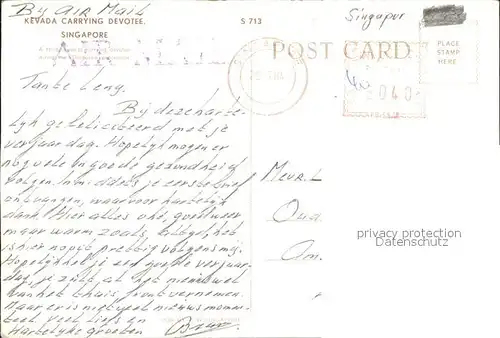 By AIR Mail
KEVADA CARRYING DEVOTEE.
SINGAPORE
S 713
Singapur
POST CARD
PLACE
STAMP
HERE
040
Tante Leny.
Bij deze harte-
lijk gefeliciteerd met je
verjaardag. Hopelijk mogen er
nog vele in goede gezondheid
volgen. Inmiddels je eerste brief
ontvangen, waarvoor hartelijk
dank. Hier alles oké, goed weer
maar warm zoals altijd, het
is hier nooit prettig volgens mij.
Hopelijk heb je een goede verjaar-
dag, je zult al het nieuws wel
van het thuis front vernemen.
Maar er is niet veel nieuws momen-
teel. Veel liefs en
Hartelijke groeten
Bram
Mevr. L
Oud
Am.
privacy protection
Datenschutz